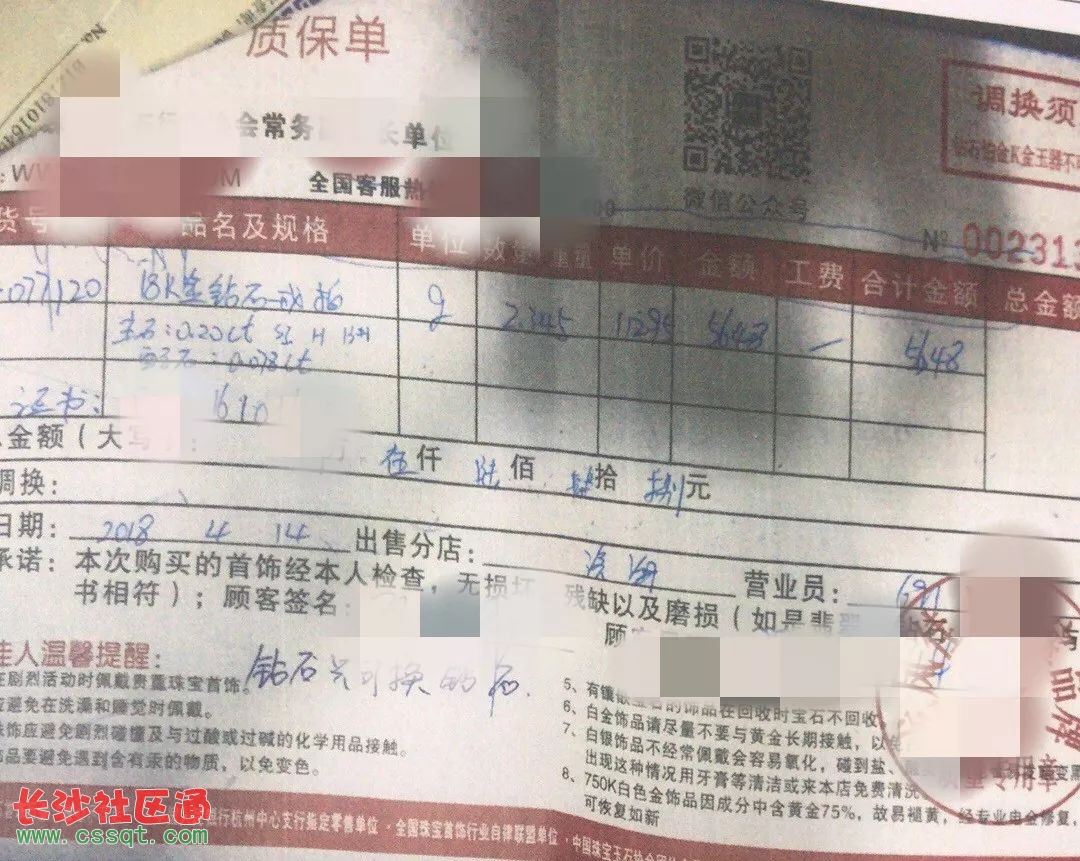 质保单
会常务
长单位
全国客服热
微信公众号
调换须
钻石铂金K金玉器不
№ 002313
货号 品名及规格 单位 数量 重量 单价 金额 工费 合计金额 总金额
077120 18K金钻石戒指 g 2.345 11295 5648 — 5648
主石:0.20ct
0.078ct
证书: 1610
金额(大写 : 伍仟 陆佰 肆拾 捌元
调换:
日期: 2018 4 14 出售分店: 营业员:
承诺:本次购买的首饰经本人检查,无损坏 残缺以及磨损(如是翡翠
书相符);顾客签名: 顾
佳人温馨提醒:
钻石只可换钻石.
在剧烈活动时佩戴贵重珠宝首饰。
应避免在洗澡和睡觉时佩戴。
饰应避免剧烈碰撞及与过酸或过碱的化学用品接触。
饰品要避免遇到含有汞的物质,以免变色。
5、有镶嵌宝石的饰品在回收时宝石不回收
6、白金饰品请尽量不要与黄金长期接触,以免
7、白银饰品不经常佩戴会容易氧化,碰到盐、
出现这种情况用牙膏等清洁或来本店免费清洗
8、750K白色金饰品因成分中含黄金75%,故易褪黄,经专业电金修复,
可恢复如新
专用章
银行杭州中心支行指定零售单位 · 全国珠宝首饰行业自律联盟单位 ·
长沙社区通
www.cssqt.com